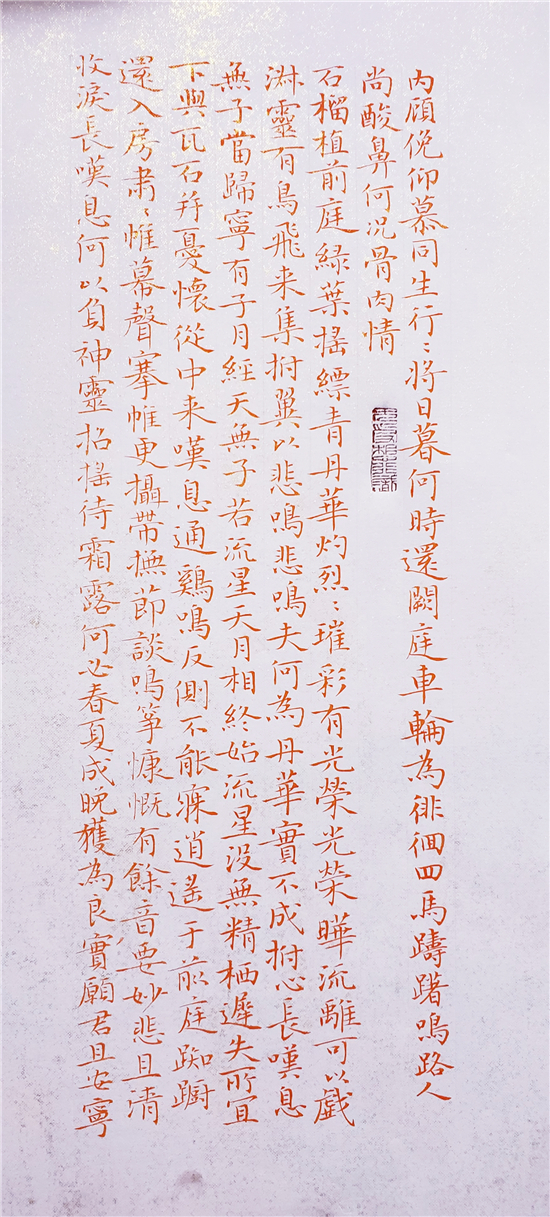 內顧俛仰慕同生行〻將日暮何時還闕庭車輪為徘徊四馬躊躇鳴路人
尚酸鼻何况骨肉情
石榴植前庭綠葉揺縹青丹華灼烈〻璀彩有光榮光榮曄流離可以戲
淋靈有鳥飛来集拊翼以悲鳴悲鳴夫何為丹華實不成拊心長嘆息
無子當歸寧有子月經天無子若流星天月相終始流星没無精栖遲失所宜
下與瓦石并憂懷從中来嘆息通鷄鳴反側不能寐逍遙于前庭踟蹰
還入房肅〻帷幕聲搴帷更攝帶撫節談鳴筝慷慨有餘音要妙悲且清
收淚長嘆息何以負神靈招揺待霜露何必春夏成晚獲為良實願君且安寧